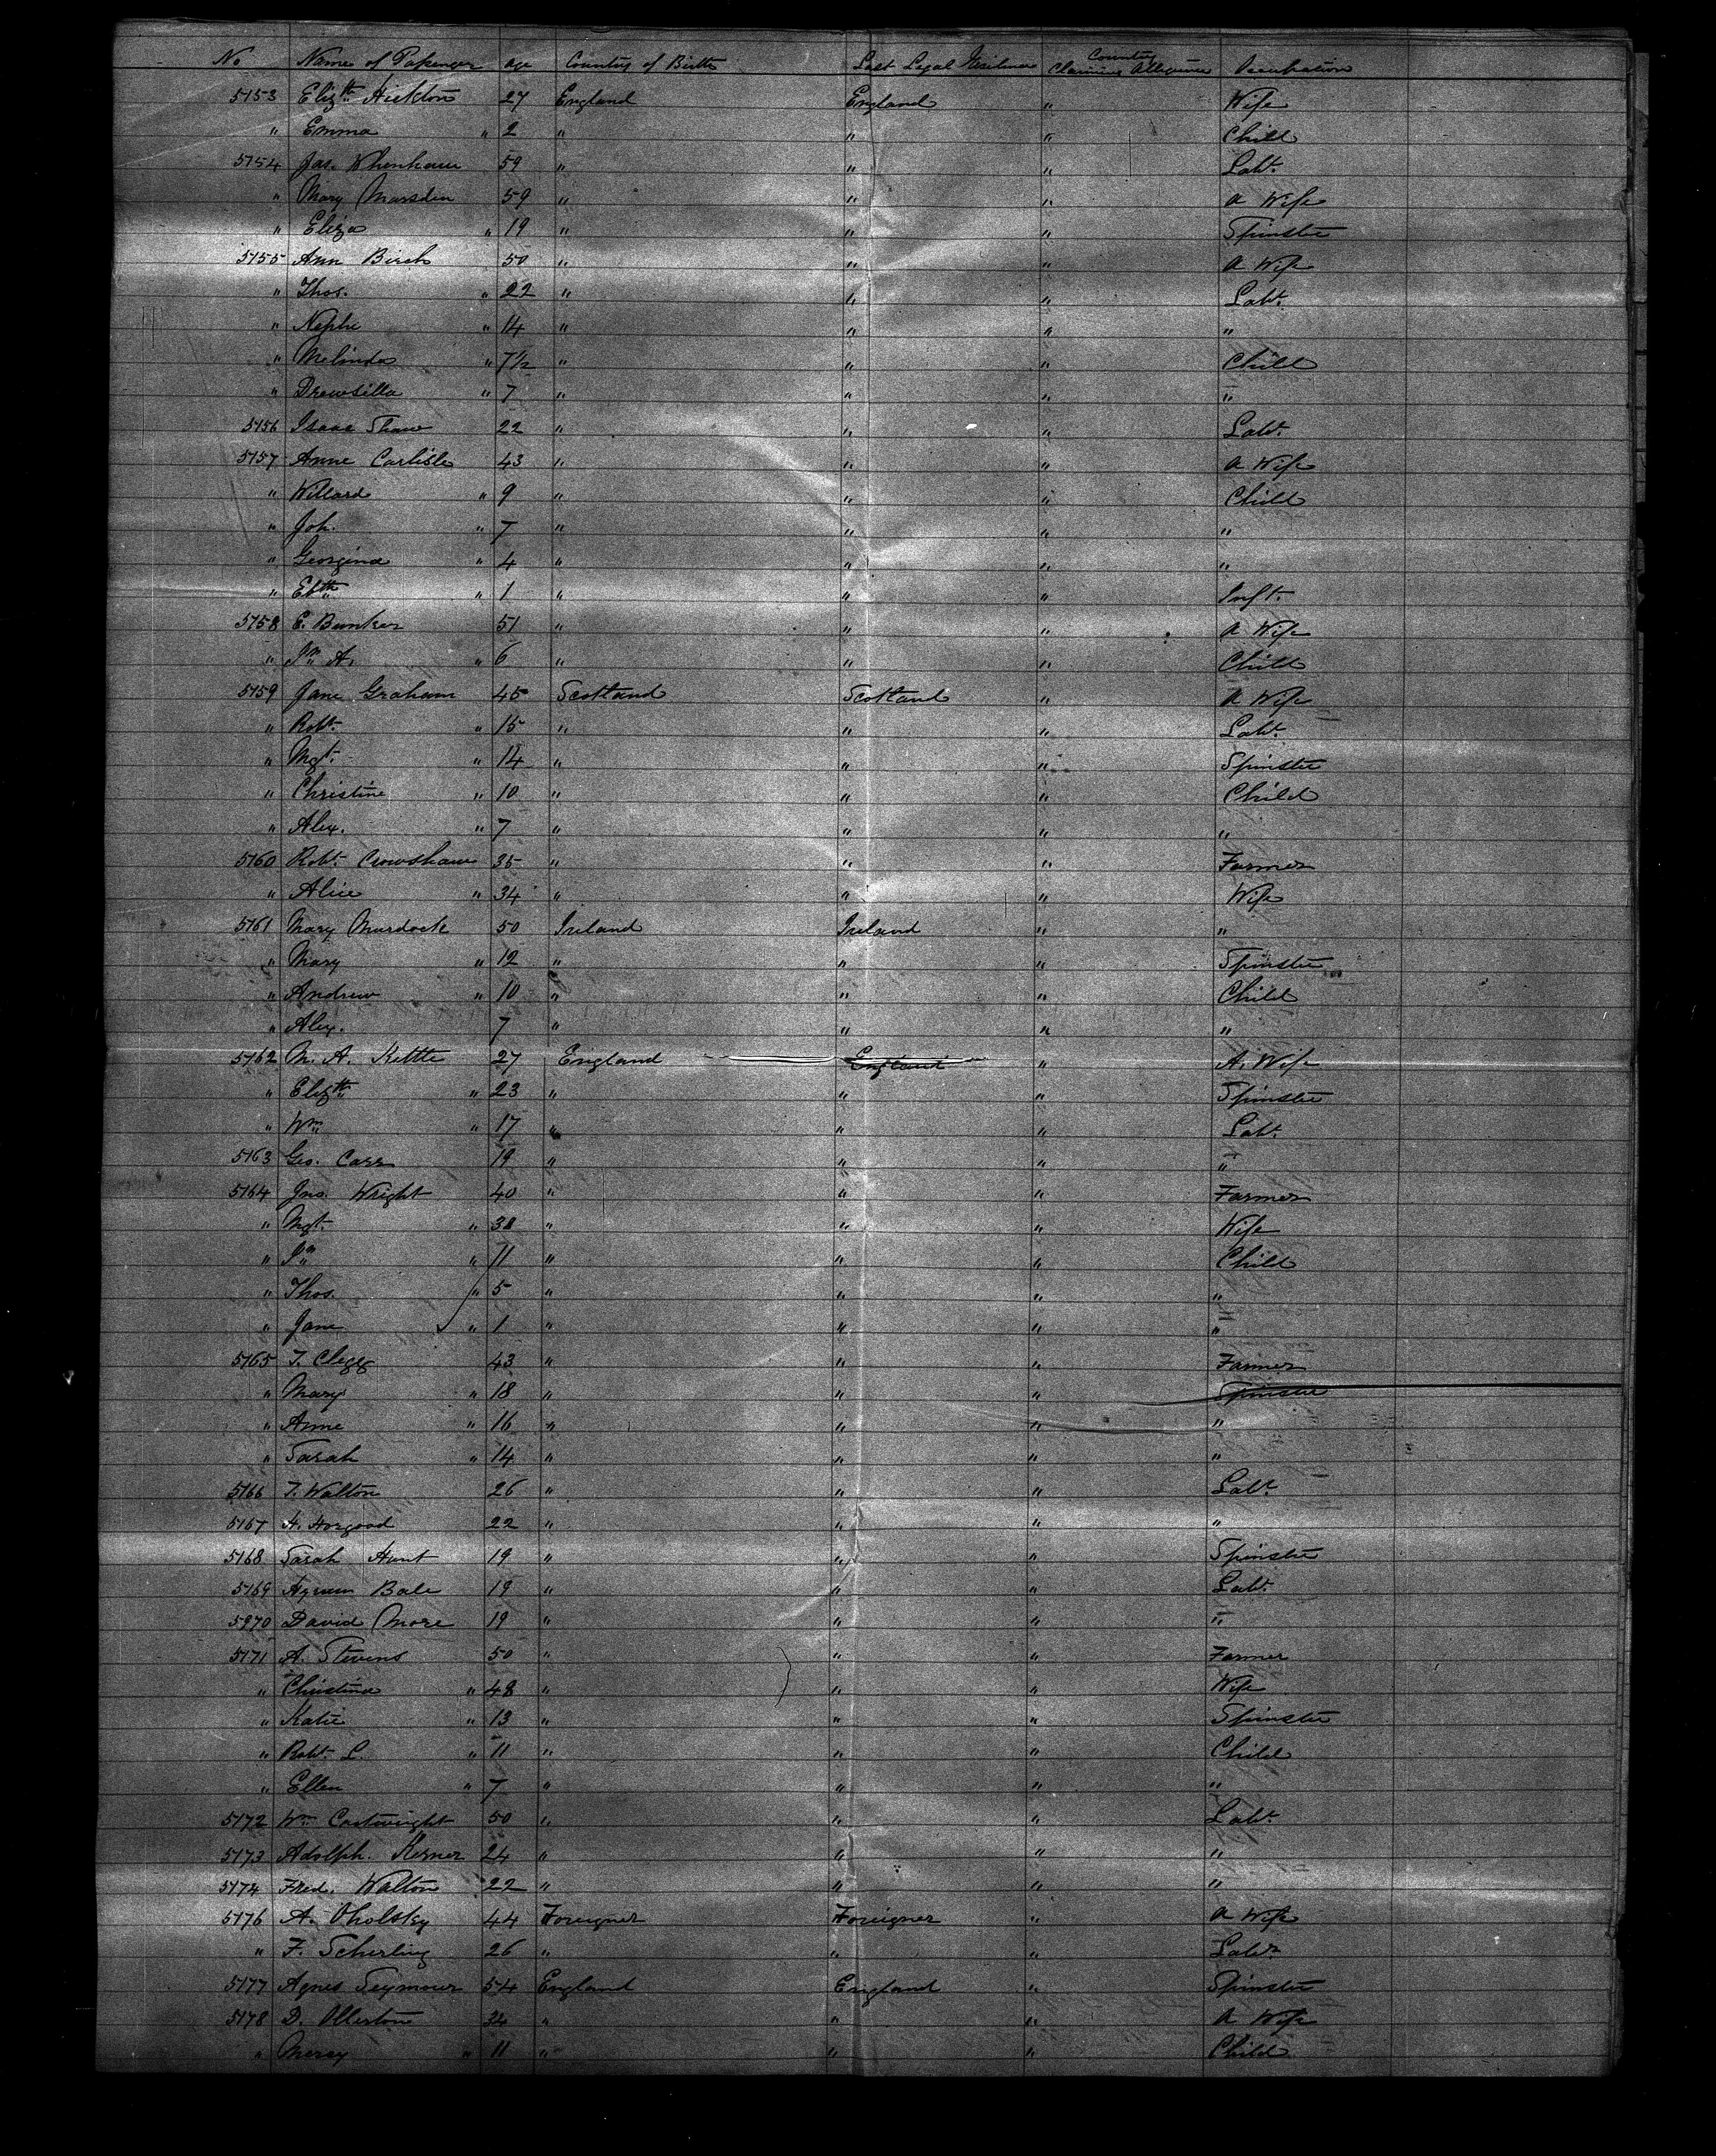 No Name of Passenger Age Country of Birth Last Legal Residence Country Claiming Allegiance Occupation
5153 Elizth Hickton 27 England England " Wife
" Emma " 2 " " " Child
5154 Jas. Whenham 59 " " " Labr.
" Mary Marsden 59 " " " A Wife
" Eliza " 19 " " " Spinster
5155 Ann Birch 50 " " " A Wife
" Thos. " 22 " " " Labr.
" Nephi " 14 " " " "
" Melinda " 7½ " " " Child
" Drewsilla " 7 " " " "
5156 Isaac Shaw 22 " " " Labr.
5157 Anne Carlisle 43 " " " A Wife
" Willard " 9 " " " Child
" Joh. " 7 " " " "
" Georgina " 4 " " " "
" Ebth " 1 " " " Inft.
5158 E. Bunker 51 " " " A Wife
" Jn A. " 6 " " " Child
5159 Jane Graham 45 Scotland Scotland " A Wife
" Robt. " 15 " " " Labr.
" Mgt. " 14 " " " Spinster
" Christine " 10 " " " Child
" Alex. " 7 " " " "
5160 Robt. Crowshaw 35 " " " Farmer
" Alice " 34 " " " Wife
5161 Mary Murdock 50 Ireland Ireland " "
" Mary " 12 " " " Spinster
" Andrew " 10 " " " Child
" Alex. 7 " " " "
5162 M. A. Kettle 27 England England " A. Wife
" Elizth " 23 " " " Spinster
" Wm " 17 " " " Labr.
5163 Geo. Carr 19 " " " "
5164 Jno. Wright 40 " " " Farmer
" Mgt. " 38 " " " Wife
" Jn " 11 " " " Child
" Thos. " 5 " " " "
" Jane " 1 " " " "
5165 T. Clegg 43 " " " Farmer
" Mary " 18 " " " Spinster
" Anne " 16 " " " "
" Sarah " 14 " " " "
5166 T. Walton 26 " " " Labr.
5167 H. Horgood 22 " " " "
5168 Sarah Hunt 19 " " " Spinster
5169 Hyrum Bale 19 " " " Labr.
5970 David More 19 " " " "
5171 A. Stevens 50 " " " Farmer
" Christina " 48 " " " Wife
" Katie " 13 " " " Spinster
" Robt. L. " 11 " " " Child
" Ellen " 7 " " " "
5172 Wm Cartwright 50 " " " Labr.
5173 Adolph. Kerner 24 " " " "
5174 Fred. Walton 22 " " " "
5176 A. Oholsky 44 Foreigner Foreigner " A Wife
" F. Scherling 26 " " " Labr
5177 Agnes Seymour 54 England England " Spinster
5178 D. Ollerton 34 " " " A Wife
" Mercy " 11 " " " Child